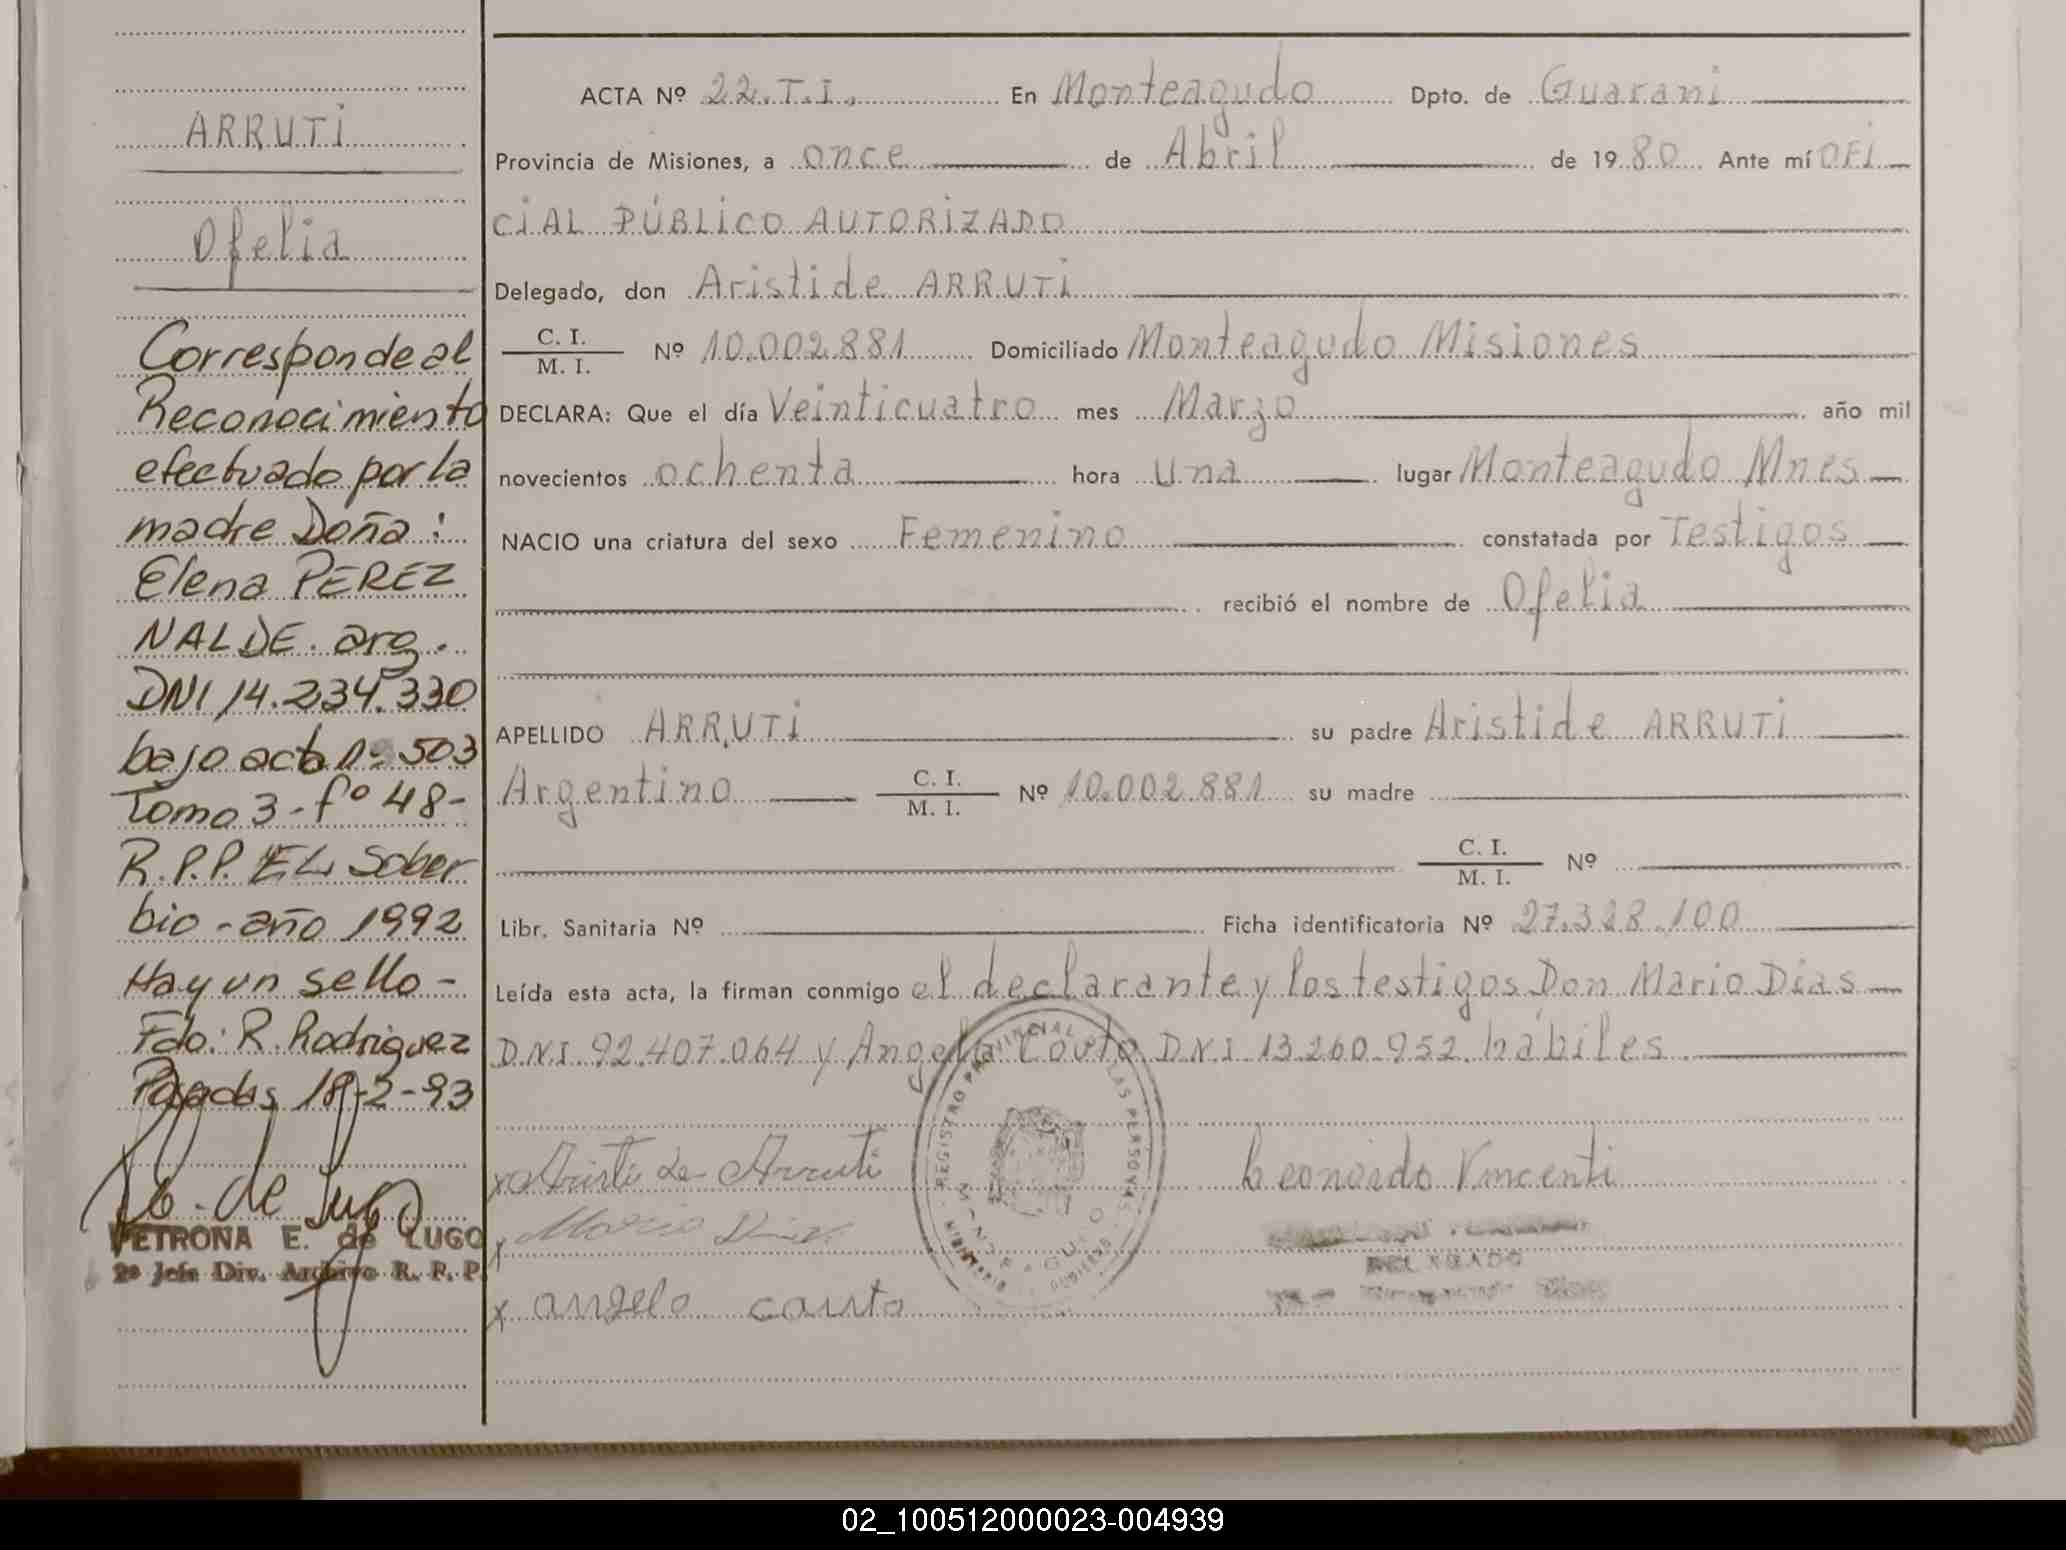 ARRUTI
Ofelia
Corresponde al
Reconocimiento
efectuado por la
madre Doña:
Elena PEREZ
NALDE. arg.
DNI 14.234.330
bajo acta nº 503
Tomo 3 - fº 48 -
R.P.P. EL Sober
bio - año 1992
Hay un sello -
Fdo: R. Rodriguez
Posadas 18-2-93
PETRONA E. de LUGO
2º Jefe Div. Archivo R. P. P.
ACTA Nº 22.T.I. En Monteagudo Dpto. de Guarani
Provincia de Misiones, a once de Abril de 1980 Ante mí OFI
CIAL PÚBLICO AUTORIZADO
Delegado, don Aristide ARRUTI
C. I. / M. I. Nº 10.002.881 Domiciliado Monteagudo Misiones
DECLARA: Que el día Veinticuatro mes Marzo año mil
novecientos ochenta hora una lugar Monteagudo Mnes
NACIO una criatura del sexo Femenino constatada por Testigos
recibió el nombre de Ofelia
APELLIDO ARRUTI su padre Aristide ARRUTI
Argentino C. I. / M. I. Nº 10.002.881 su madre
C. I. / M. I. Nº
Libr. Sanitaria Nº Ficha identificatoria Nº 27.328.100
Leída esta acta, la firman conmigo el declarante y los testigos Don Mario Dias
DNI 92.407.064 y Angelo Couto DNI 13.260.952. hábiles
x Aristide Arruti
Leonardo Vincenti
x Mario Dias
DELEGADO
x angelo couto
REGISTRO PROVINCIAL DE LAS PERSONAS
02_100512000023-004939